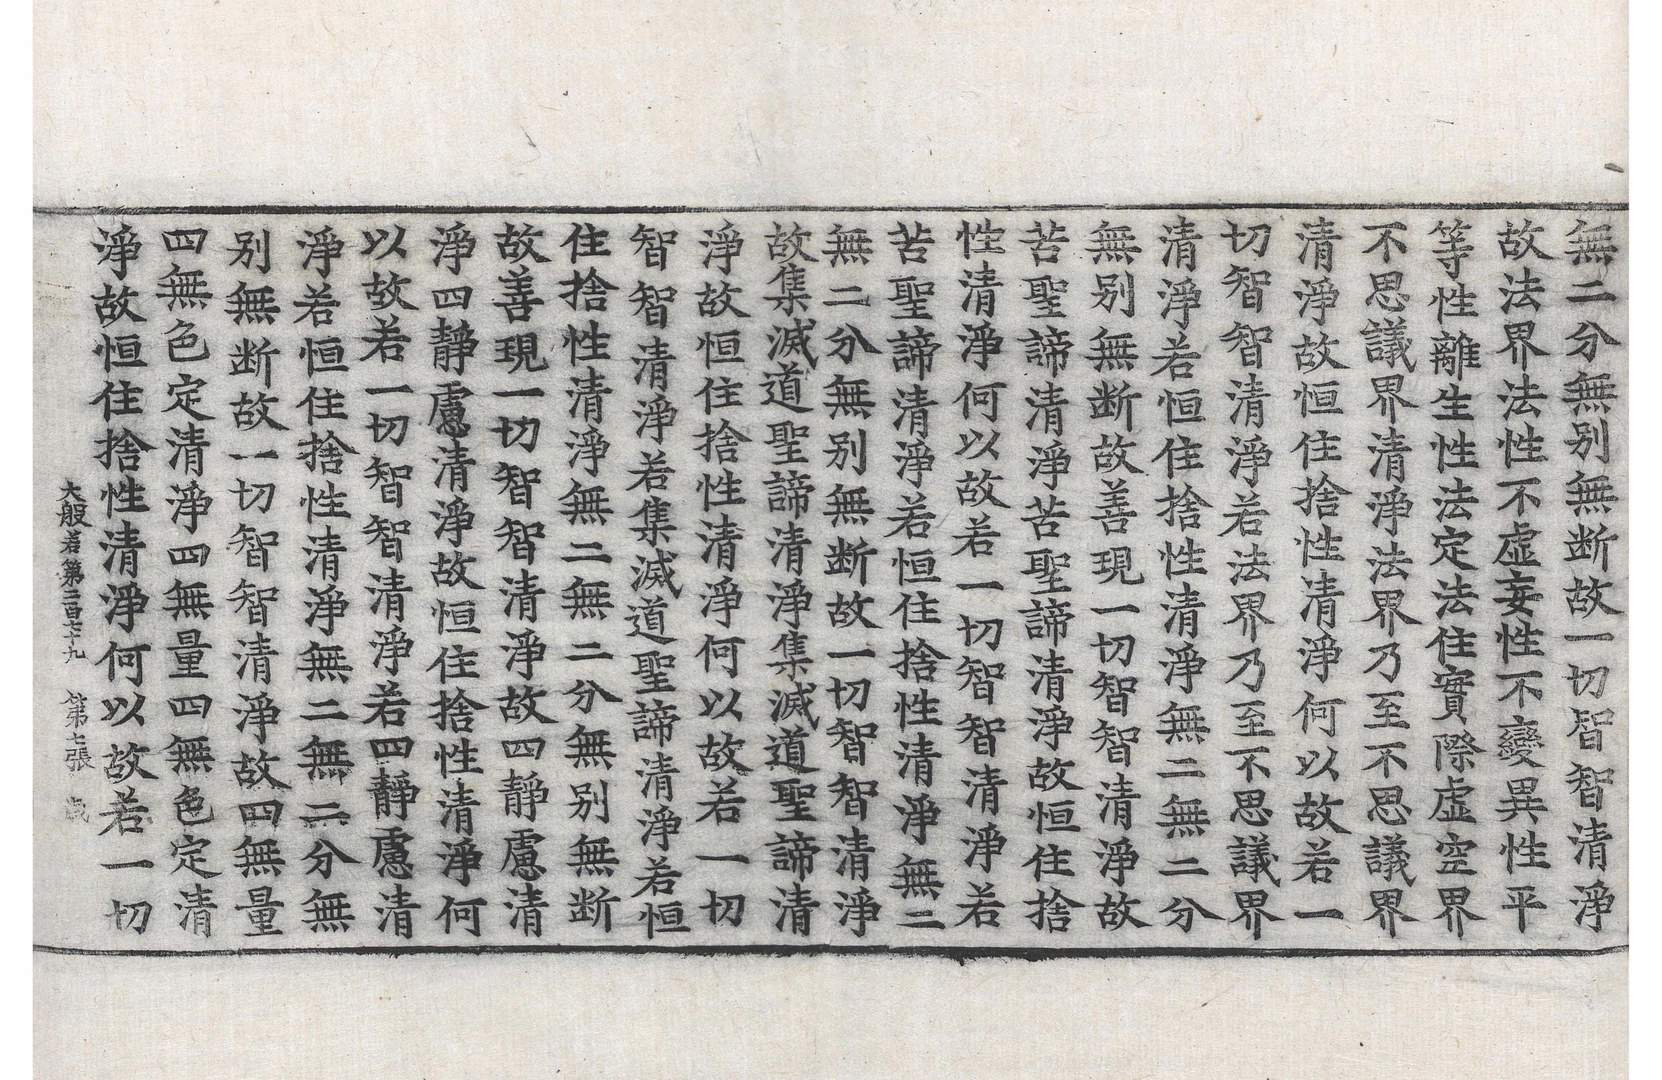 無二分無別無断故一切智智清淨
故法界法性不虛妄性不變異性平
等性離生性法定法住實際虛空界
不思議界清淨法界乃至不思議界
清淨故恒住捨性清淨何以故若一
切智智清淨若法界乃至不思議界
清淨若恒住捨性清淨無二無二分
無別無断故善現一切智智清淨故
苦聖諦清淨苦聖諦清淨故恒住捨
性清淨何以故若一切智智清淨若
苦聖諦清淨若恒住捨性清淨無二
無二分無別無断故一切智智清淨
故集滅道聖諦清淨集滅道聖諦清
淨故恒住捨性清淨何以故若一切
智智清淨若集滅道聖諦清淨若恒
住捨性清淨無二無二分無別無断
故善現一切智智清淨故四靜慮清
淨四靜慮清淨故恒住捨性清淨何
以故若一切智智清淨若四靜慮清
淨若恒住捨性清淨無二無二分無
別無断故一切智智清淨故四無量
四無色定清淨四無量四無色定清
淨故恒住捨性清淨何以故若一切
大般若第二百七十九 第七張